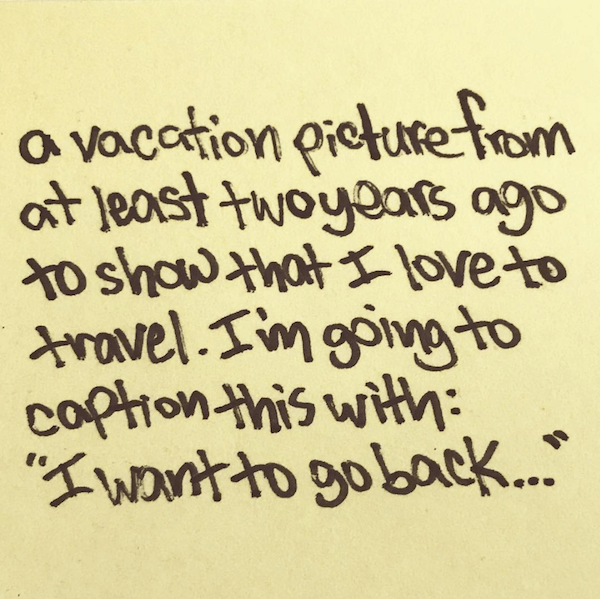 a vacation picture from
at least two years ago
to show that I love to
travel. I'm going to
caption this with:
"I want to go back..."